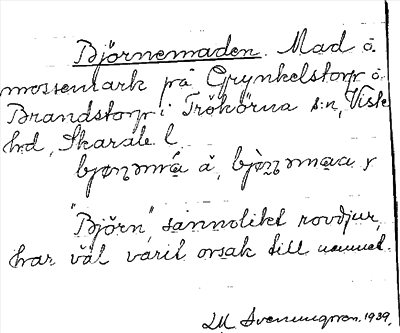 Björnemaden. Mad o.
mossemark på Grynkelstorp o.
Brandstorp i Trökörna s:n, Viste
hd, Skarab. l.
"Björn", sannolikt rovdjur,
har väl varit orsak till namnet.
Svenungsson. 1939.